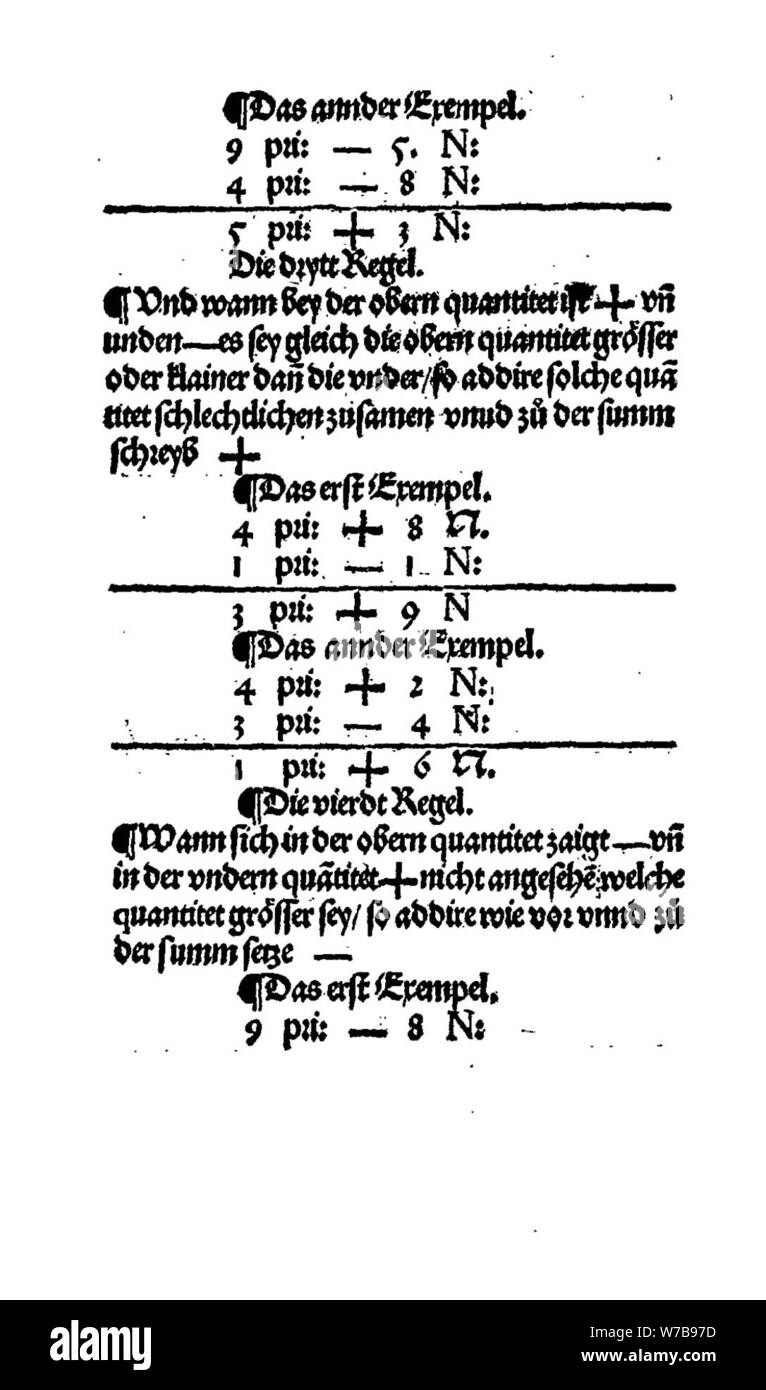 ¶Das annder Exempel.
9 pri: — 5. N:
4 pri: — 8 N:
5 pri: + 3 N:
Die drytt Regel.
¶ Vnd wann bey der obern quantitet ist + vñ
unden — es sey gleich die obern quantitet grösser
oder klainer dañ die vnder / so addire solche quã
titet schlechtlichen zusamen vnnd zů der summ
schreyb +
¶Das erst Exempel.
4 pri: + 8 N.
1 pri: — 1 N:
3 pri: + 9 N
¶Das annder Exempel.
4 pri: + 2 N:
3 pri: — 4 N:
1 pri: + 6 N.
¶Die vierdt Regel.
¶Wann sich in der obern quantitet zaigt — vñ
in der vndern quãtitet + nicht angesehẽ welche
quantitet grösser sey / so addire wie vor vnnd zů
der summ setze —
¶Das erst Exempel.
9 pri: — 8 N:
alamy
W7B97D
www.alamy.com